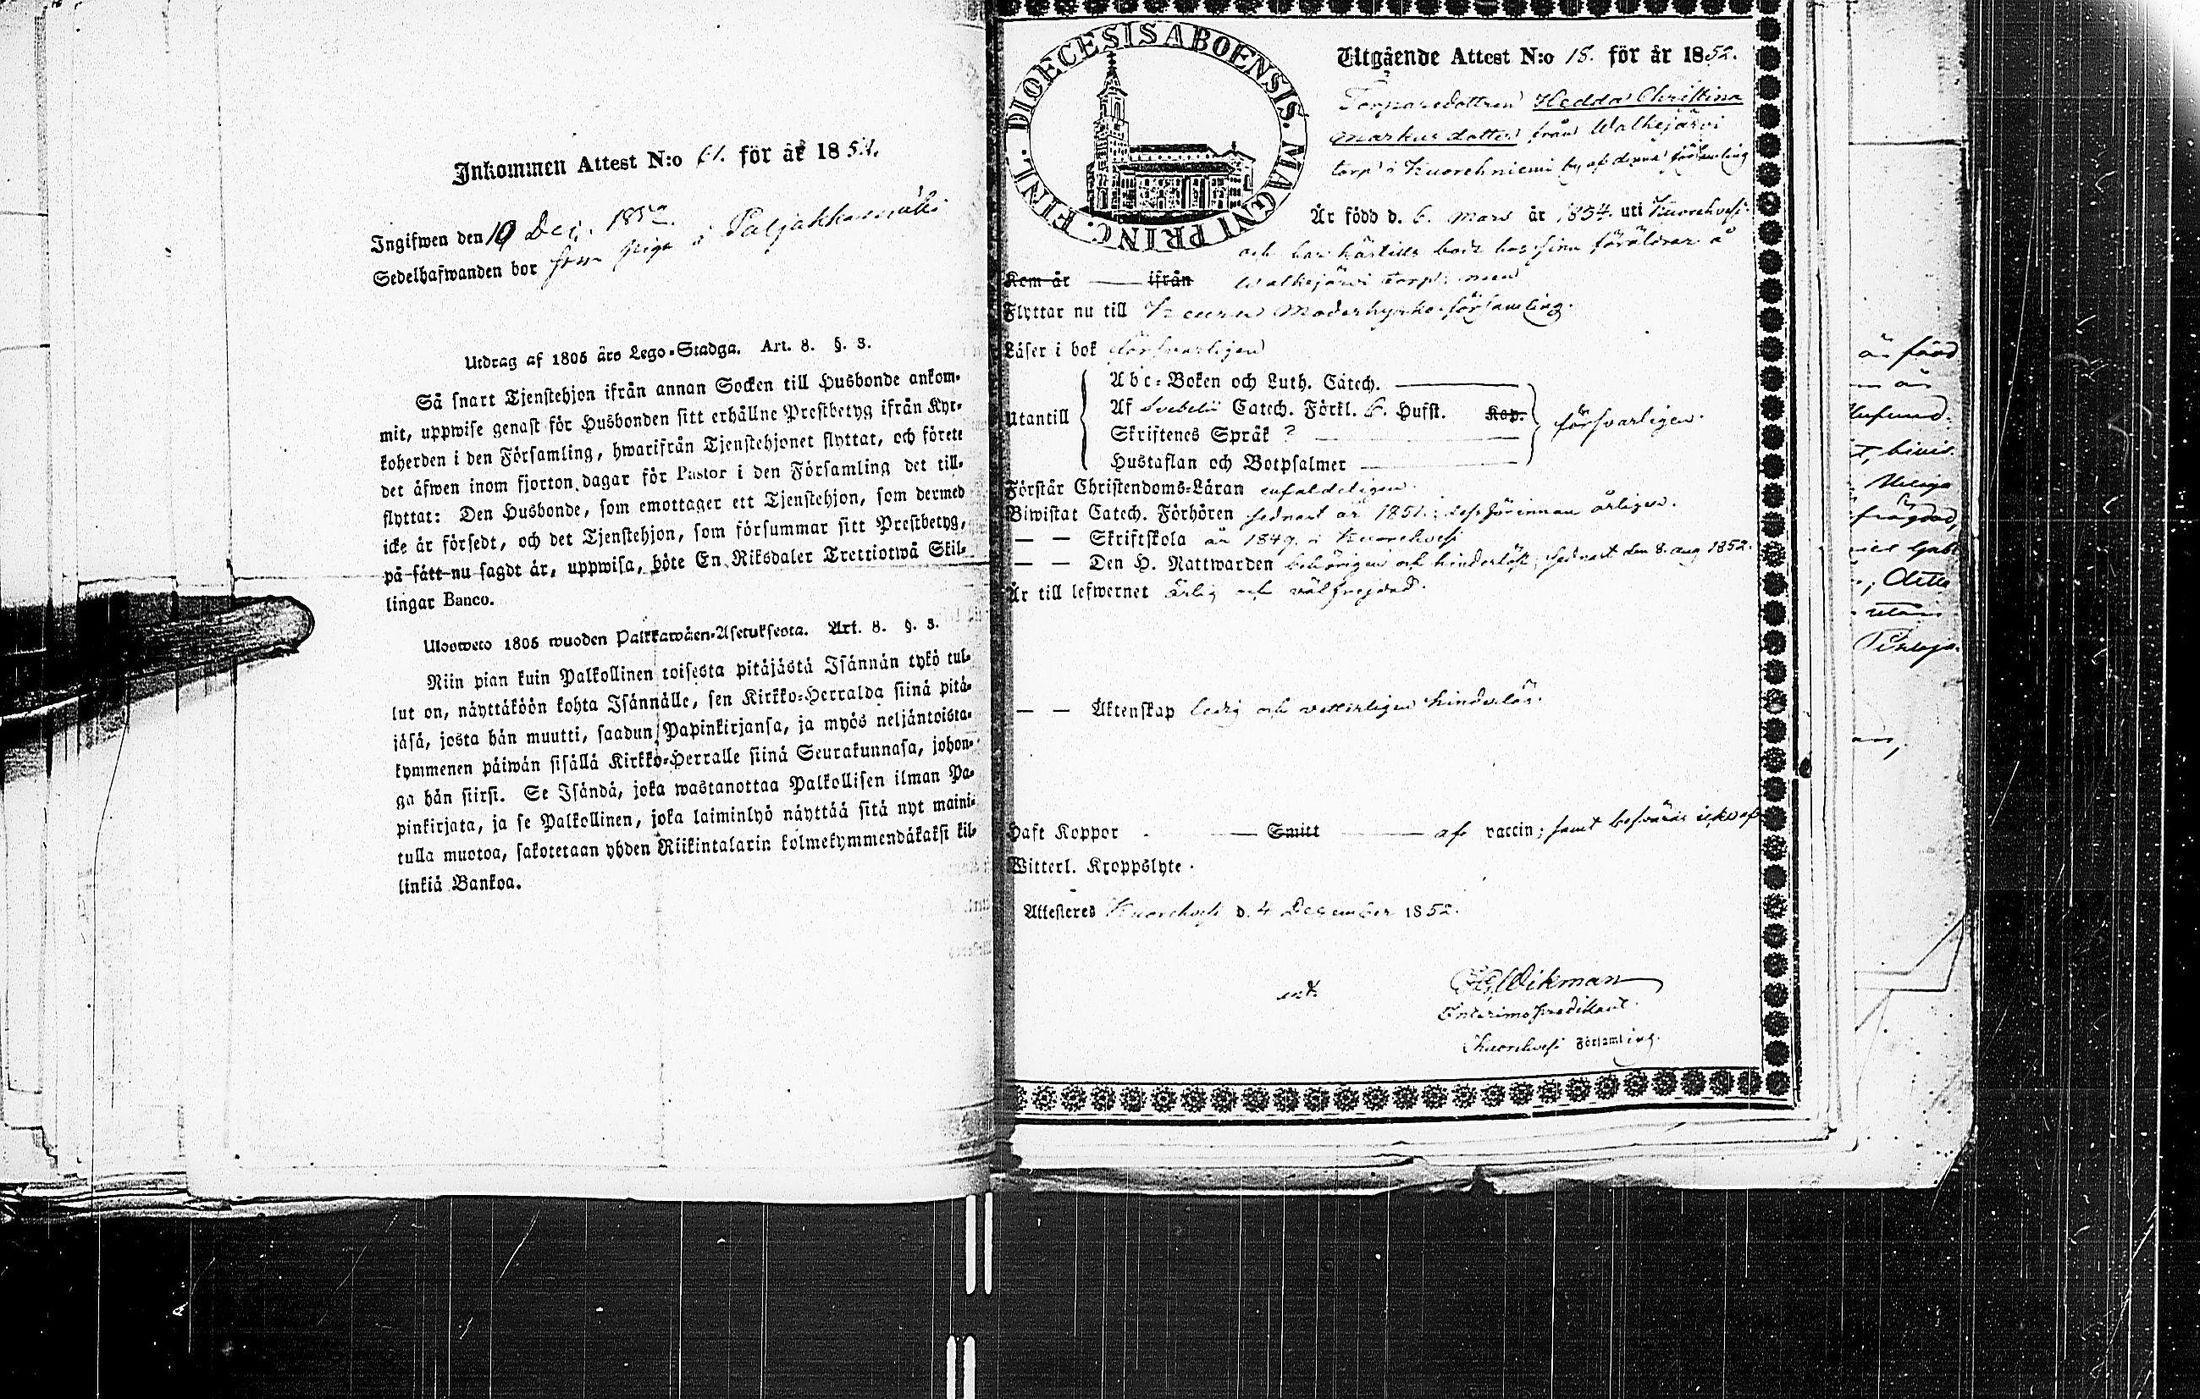 Inkommen Attest N:o 61. för år 1852.
Ingifwen den 10 Dec. 1852.
Sedelhafwanden bor som piga i Paljakkamäki
Utdrag af 1805 års Lego-Stadga. Art. 8. §. 3.
Så snart Tjenstehjon ifrån annan Socken till Husbonde ankom-
mit, uppwise genast för Husbonden sitt erhållne Prestbetyg ifrån Kyr-
koherden i den Församling, hwarifrån Tjenstehjonet flyttat, och förete
det äfwen inom fjorton dagar för Pastor i den Församling det till-
flyttat: Den Husbonde, som emottager ett Tjenstehjon, som dermed
icke är försedt, och det Tjenstehjon, som försummar sitt Prestbetyg,
på sätt nu sagdt är, uppwisa, böte En Riksdaler Trettiotwå Skil-
lingar Banco.
Ulosweto 1805 wuoden Palkkawäen-Asetuksesta. Art. 8. §. 3.
Niin pian kuin Palkollinen toisesta pitäjästä Isännän tykö tul-
lut on, näyttäköön kohta Isännälle, sen Kirkko-Herralda siinä pitä-
jäsä, josta hän muutti, saadun Papinkirjansa, ja myös neljäntoista-
kymmenen päiwän sisällä Kirkko-Herralle siinä Seurakunnasa, johon-
ga hän siirsi. Se Isändä, joka wastanottaa Palkollisen ilman Pa-
pinkirjata, ja se Palkollinen, joka laiminlyö näyttää sitä nyt maini-
tulla muotoa, sakotetaan yhden Riikintalarin kolmekymmendäkaksi kil-
linkiä Bankoa.
DIOECESIS ABOENSIS. MAGNI PRINC. FINL.
Utgående Attest N:o 18. för år 1852.
Torparedottren Hedda Christina
Markusdotter från Walkejärvi
torp i Kuorehniemi by af denna församling
Är född d. 6. Mars år 1834. uti Kuorehvesi
och har härtills bott hos sina föräldrar å
Kom år — ifrån Walkejärvi torp; men
Flyttar nu till Keuru Moderkyrkoförsamling.
Läser i bok försvarligen
Abc-Boken och Luth. Catech. —
Utantill Af Svebelii Catech. Förkl. 6. Hufst. Kap. försvarligen.
Skriftenes Språk ? —
Hustaflan och Botpsalmer —
Förstår Christendoms-Läran enfaldeligen.
Biwistat Catech. Förhören sednast år 1851; dessförinnan årligen.
— — Skriftskola år 1849. i Kuorehvesi
— — Den H. Nattwarden behörigen och hinderlöst; sednast den 8. Aug 1852.
Är till lefwernet ärlig och välfrejdad.
— — Äktenskap ledig och vetterligen hinderlös.
Haft Koppor — Smitt — af vaccin; samt besväras icke af
Witterl. Kroppslyte.
Attesteres Kuorehvesi d. 4 December 1852.
Wikman
Interimspredikant
Kuorehvesi Församling.
är född